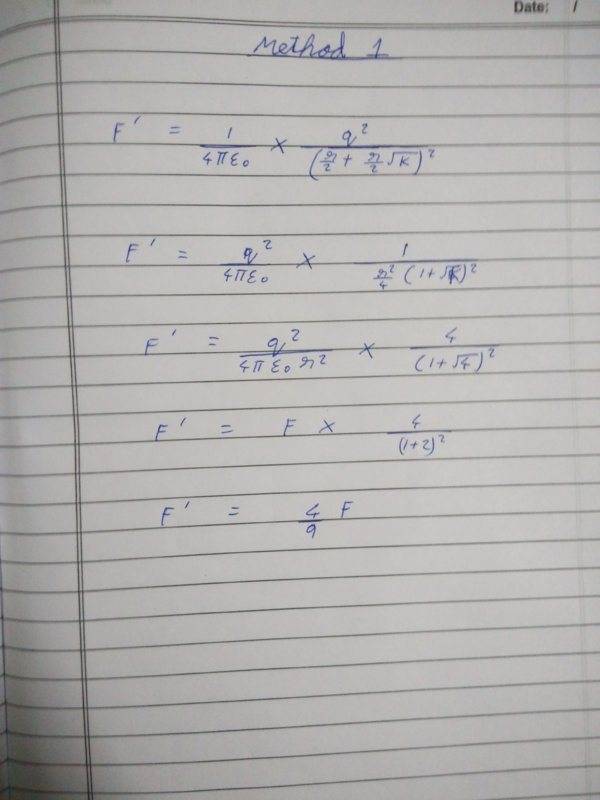 Date: /
Method 1
F' = 1/4πε₀ × q²/(r/2 + r/2 √K)²
F' = q²/4πε₀ × 1/r²/4 (1+√K)²
F' = q²/4πε₀ r² × 4/(1+√4)²
F' = F × 4/(1+2)²
F' = 4/9 F